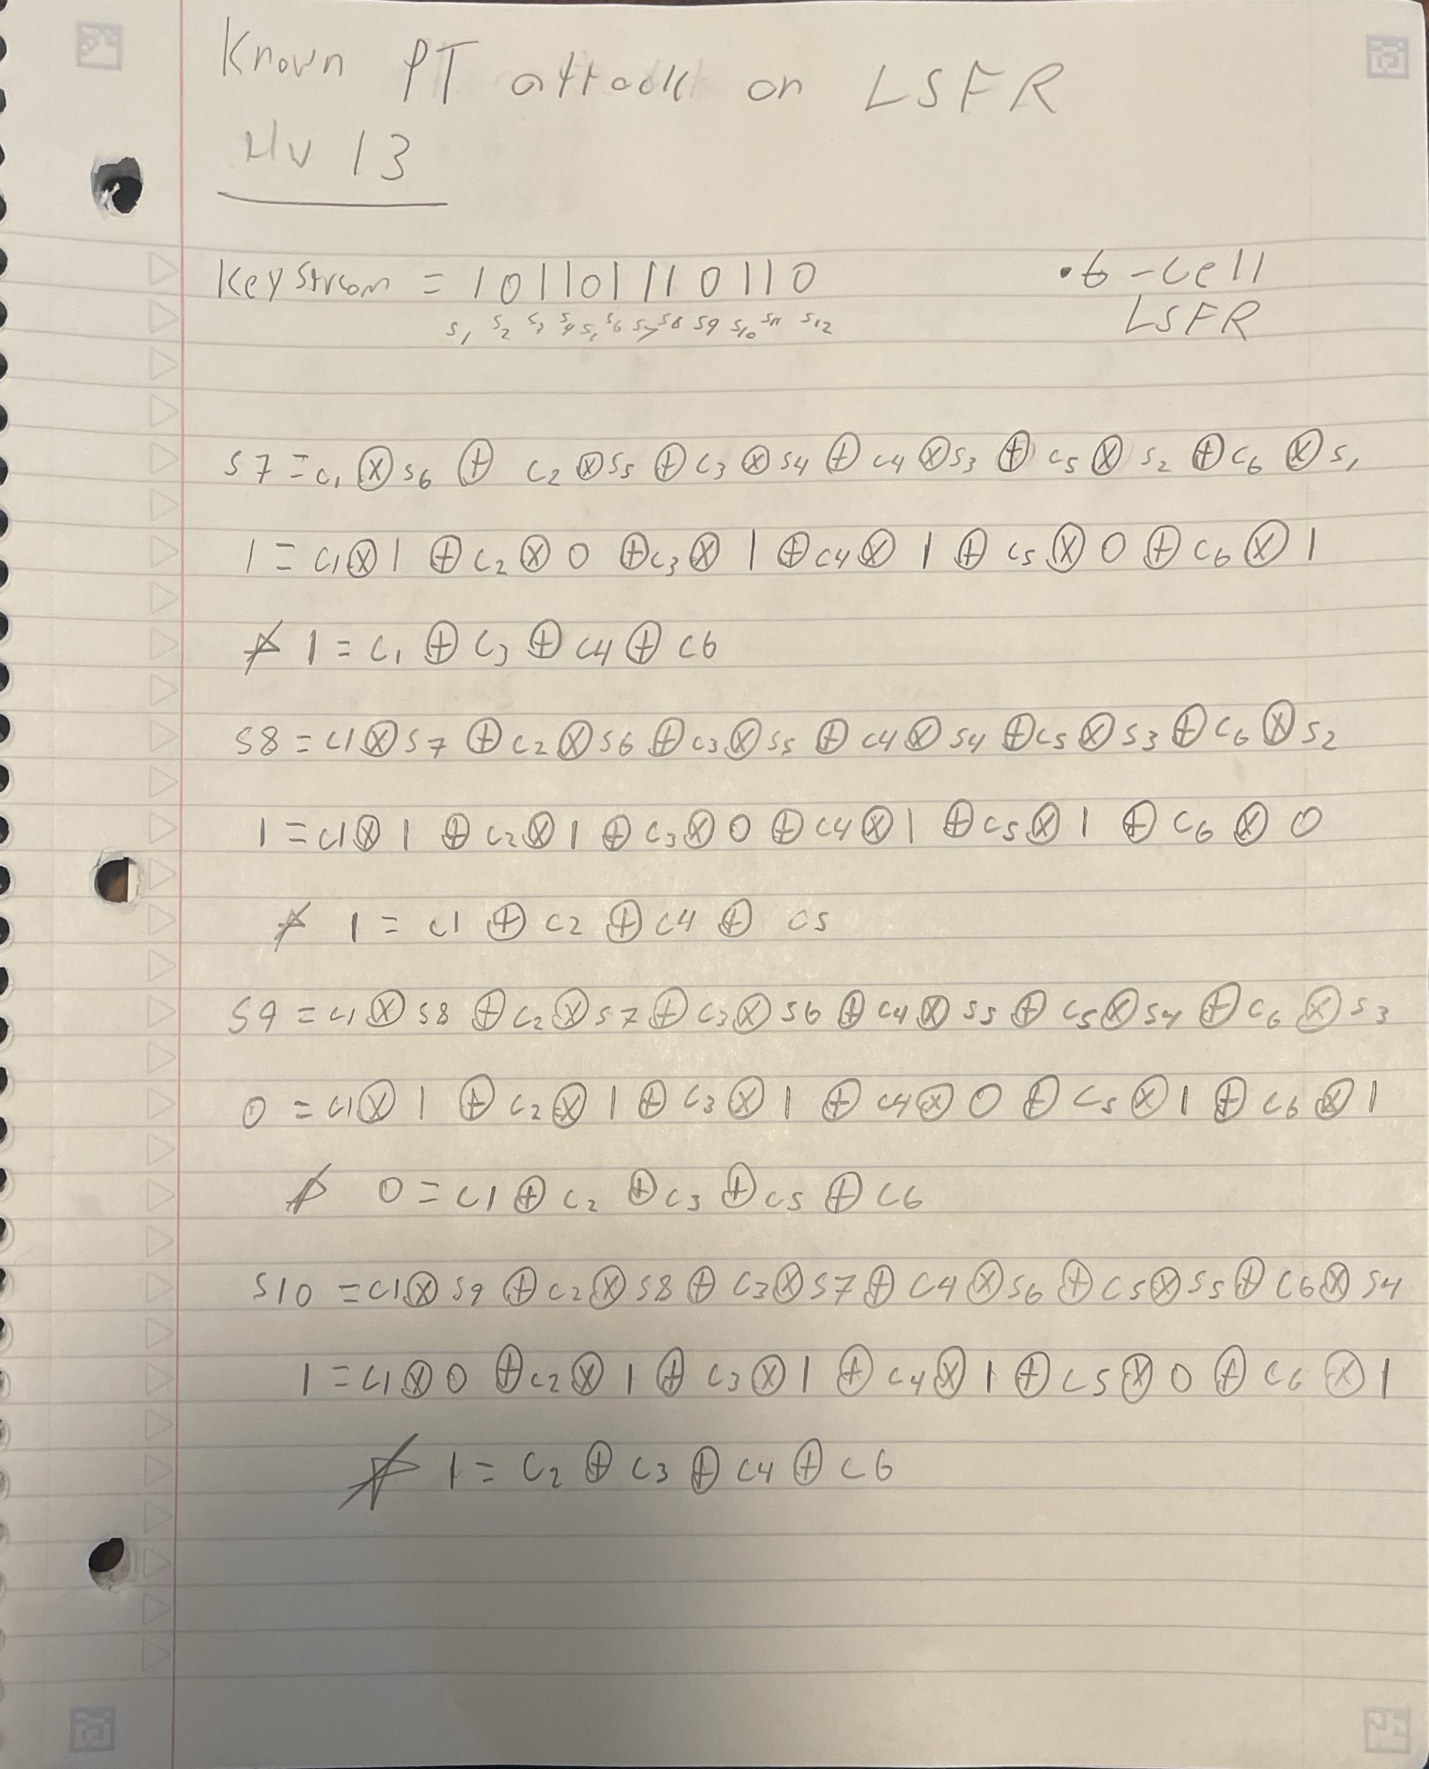 Known PT attack on LSFR
HW 13
Keystream = 101101110110
s1 s2 s3 s4 s5 s6 s7 s8 s9 s10 s11 s12
• 6-cell
LSFR
s7 = c1 ⊗ s6 ⊕ c2 ⊗ s5 ⊕ c3 ⊗ s4 ⊕ c4 ⊗ s3 ⊕ c5 ⊗ s2 ⊕ c6 ⊗ s1
1 = c1 ⊗ 1 ⊕ c2 ⊗ 0 ⊕ c3 ⊗ 1 ⊕ c4 ⊗ 1 ⊕ c5 ⊗ 0 ⊕ c6 ⊗ 1
☆ 1 = c1 ⊕ c3 ⊕ c4 ⊕ c6
s8 = c1 ⊗ s7 ⊕ c2 ⊗ s6 ⊕ c3 ⊗ s5 ⊕ c4 ⊗ s4 ⊕ c5 ⊗ s3 ⊕ c6 ⊗ s2
1 = c1 ⊗ 1 ⊕ c2 ⊗ 1 ⊕ c3 ⊗ 0 ⊕ c4 ⊗ 1 ⊕ c5 ⊗ 1 ⊕ c6 ⊗ 0
☆ 1 = c1 ⊕ c2 ⊕ c4 ⊕ c5
s9 = c1 ⊗ s8 ⊕ c2 ⊗ s7 ⊕ c3 ⊗ s6 ⊕ c4 ⊗ s5 ⊕ c5 ⊗ s4 ⊕ c6 ⊗ s3
0 = c1 ⊗ 1 ⊕ c2 ⊗ 1 ⊕ c3 ⊗ 1 ⊕ c4 ⊗ 0 ⊕ c5 ⊗ 1 ⊕ c6 ⊗ 1
☆ 0 = c1 ⊕ c2 ⊕ c3 ⊕ c5 ⊕ c6
s10 = c1 ⊗ s9 ⊕ c2 ⊗ s8 ⊕ c3 ⊗ s7 ⊕ c4 ⊗ s6 ⊕ c5 ⊗ s5 ⊕ c6 ⊗ s4
1 = c1 ⊗ 0 ⊕ c2 ⊗ 1 ⊕ c3 ⊗ 1 ⊕ c4 ⊗ 1 ⊕ c5 ⊗ 0 ⊕ c6 ⊗ 1
☆ 1 = c2 ⊕ c3 ⊕ c4 ⊕ c6